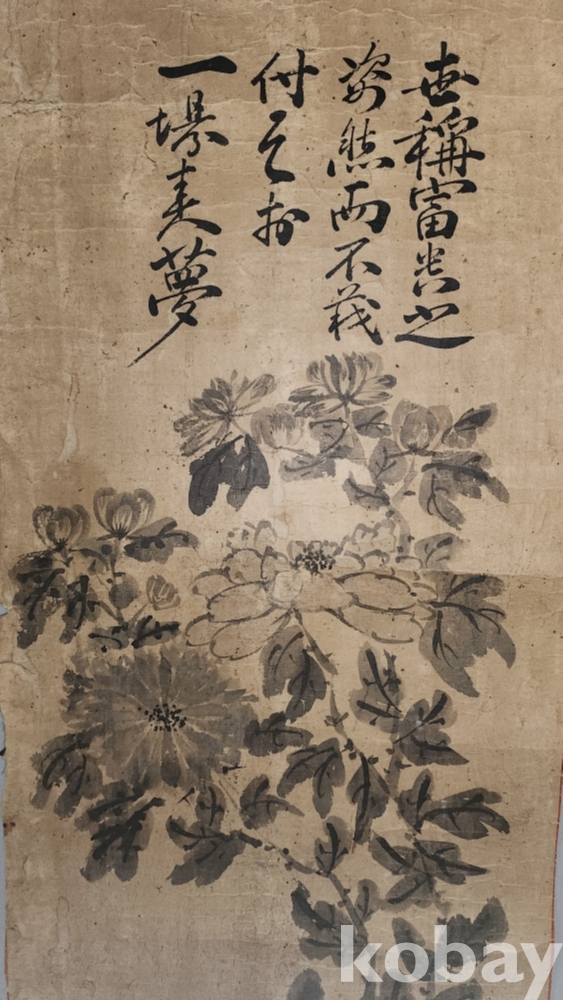 世稱富貴之
姿態而不
付之於
一場春夢
kobay